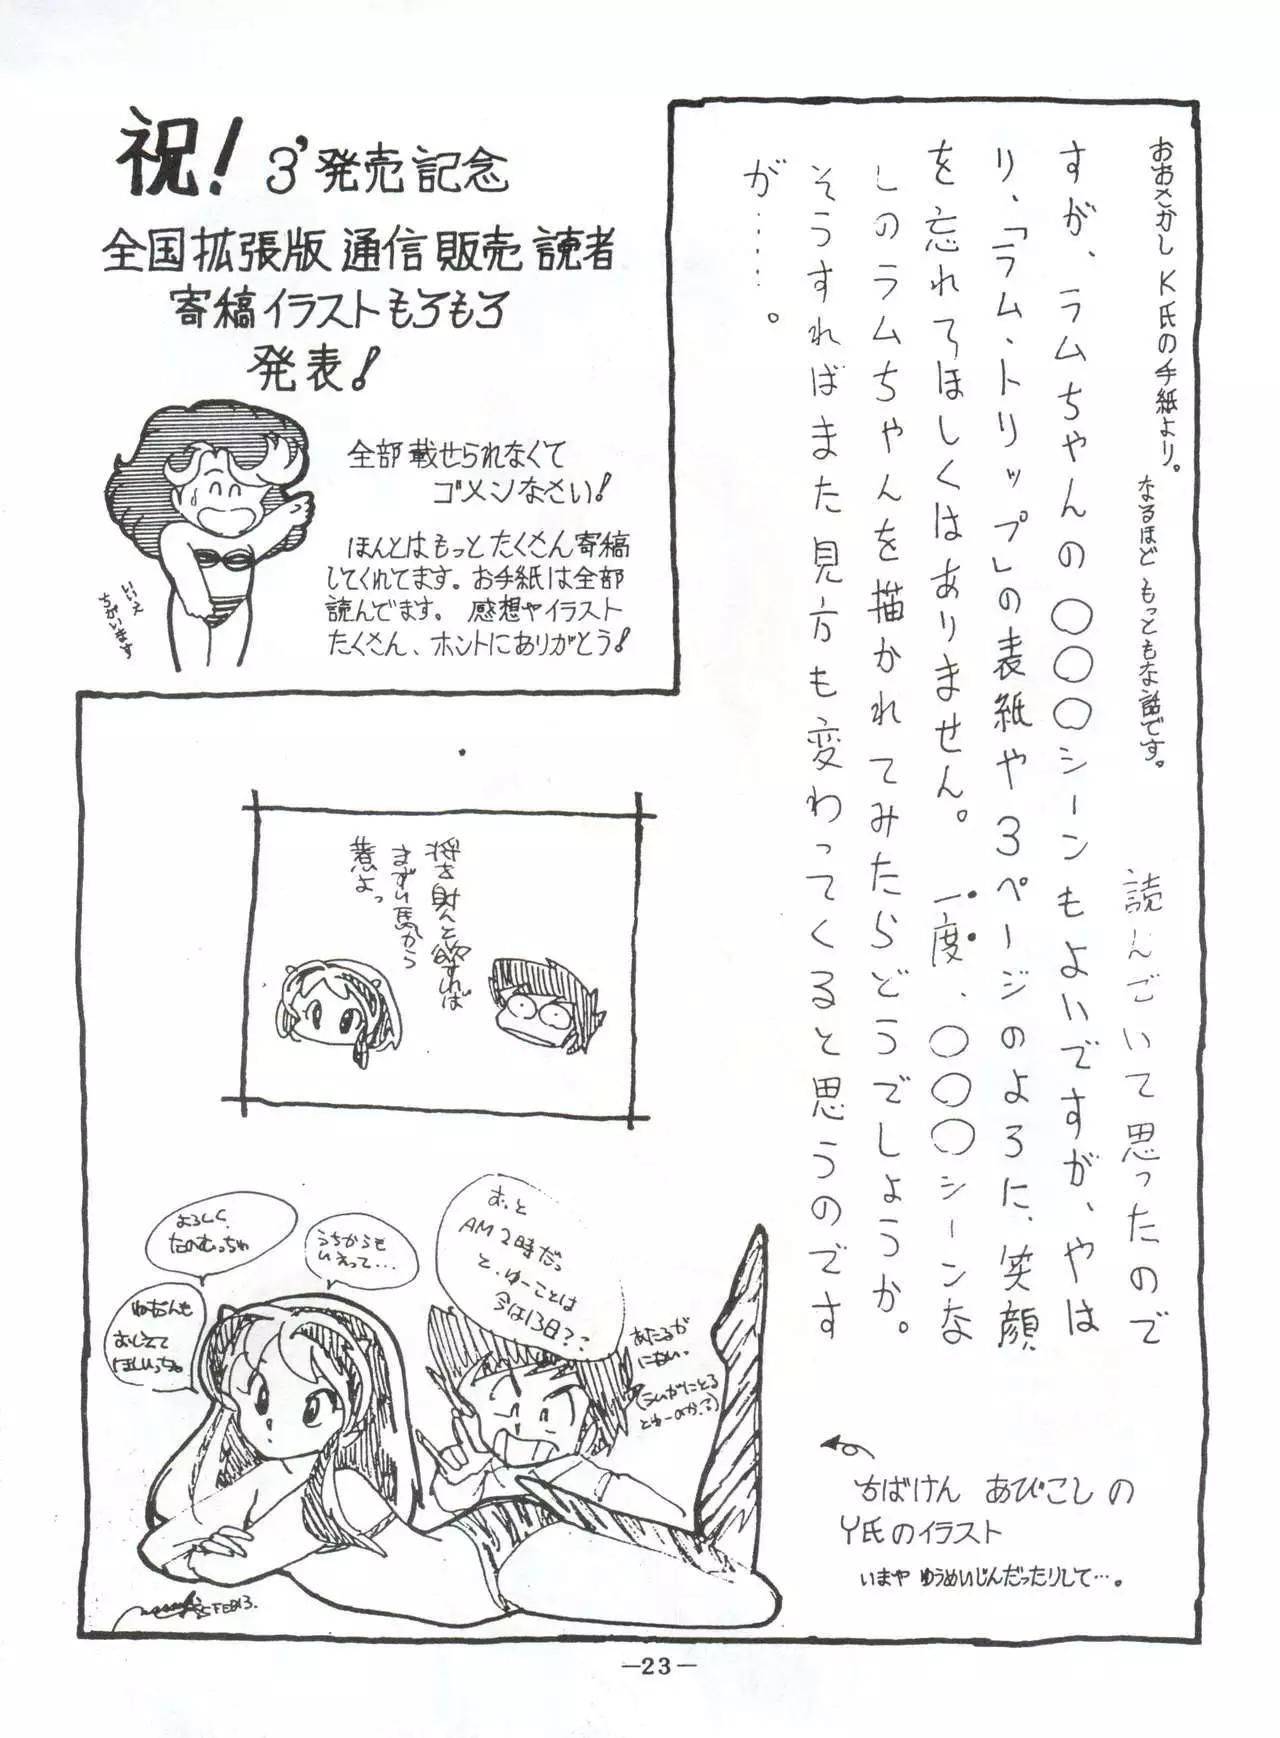 祝! 3'発売記念
全国拡張版 通信販売 読者
寄稿イラストもろもろ
発表!
全部載せられなくて
ゴメンなさい!
ほんとはもっとたくさん寄稿
してくれてます。お手紙は全部
読んでます。 感想やイラスト
たくさん、ホントにありがとう!
いいえ
ちがいます
おおさかし K氏の手紙より。
なるほど もっともな話です。
読んでいて思ったので
すが、ラムちゃんの〇〇〇シーンもよいですが、やは
り、「ラム・トリップ」の表紙や3ページのように、笑顔
を忘れてほしくはありません。一度、〇〇〇シーンな
しのラムちゃんを描かれてみたらどうでしょうか。
そうすればまた見方も変わってくると思うのです
が……。
将を射んと欲すれば
まずい馬から
慧よっ
よろしく
たのむっちゃ
うちからも
いえって…
おしえて
ほしいっちゃ
おっと
AM2時だっ
と、ゆーことは
今は13日??
あたるが
にない。
ちばけん あびこしの
Y氏のイラスト
いまや ゆうめいじんだったりして…。
FEB13.
—23—